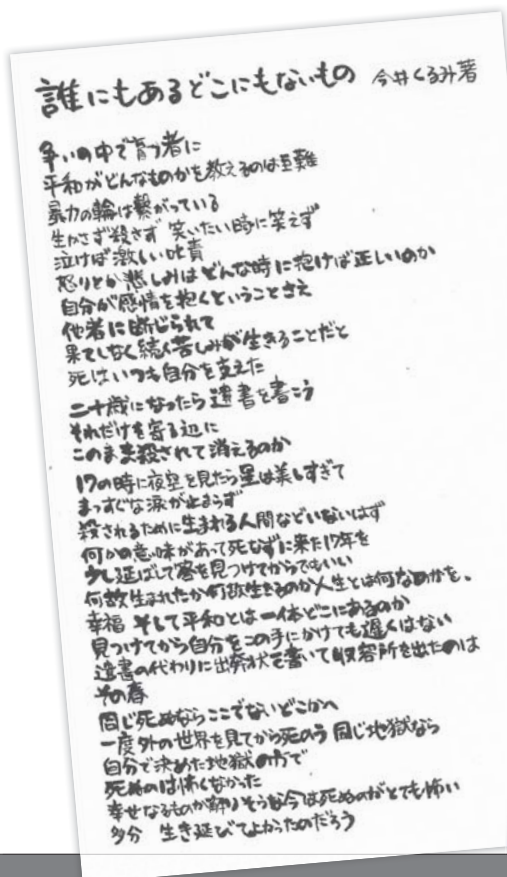 誰にもあるどこにもないもの 今井くるみ著
争いの中で育つ者に
平和がどんなものかを教えるのは至難
暴力の輪は繋がっている
生かさず殺さず 笑いたい時に笑えず
泣けば激しい叱責
怒りとか悲しみはどんな時に抱けば正しいのか
自分が感情を抱くということさえ
他者に断じられて
果てしなく続く苦しみが生きることだと
死はいつも自分を支えた
二十歳になったら遺書を書こう
それだけを寄る辺に
このまま殺されて消えるのか
17の時に夜空を見たら星は美しすぎて
まっすぐな涙が止まらず
殺されるために生まれる人間などいないはず
何かの意味があって死なずに来た17年を
少し延ばして答を見つけてからでもいい
何故生まれたか何故生きるのか人生とは何なのかを、
幸福 そして平和とは一体どこにあるのか
見つけてから自分をこの手にかけても遅くはない
遺書の代わりに出発状を書いて収容所を出たのは
その春
同じ死ぬならここでないどこかへ
一度外の世界を見てから死のう 同じ地獄なら
自分で決めた地獄の方で
死ぬのは怖くなかった
幸せなるものが解りそうな今は死ぬのがとても怖い
多分 生き延びてよかったのだろう